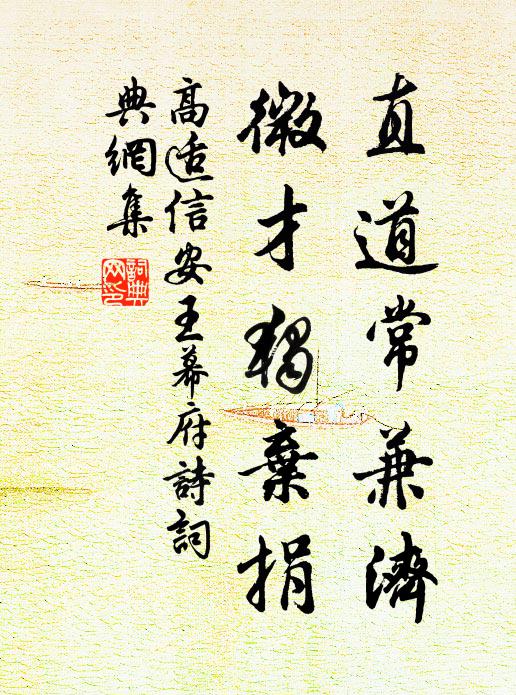 直道常兼濟
微才獨棄捐
高适信安王幕府詩詞
典網集
詞典網印